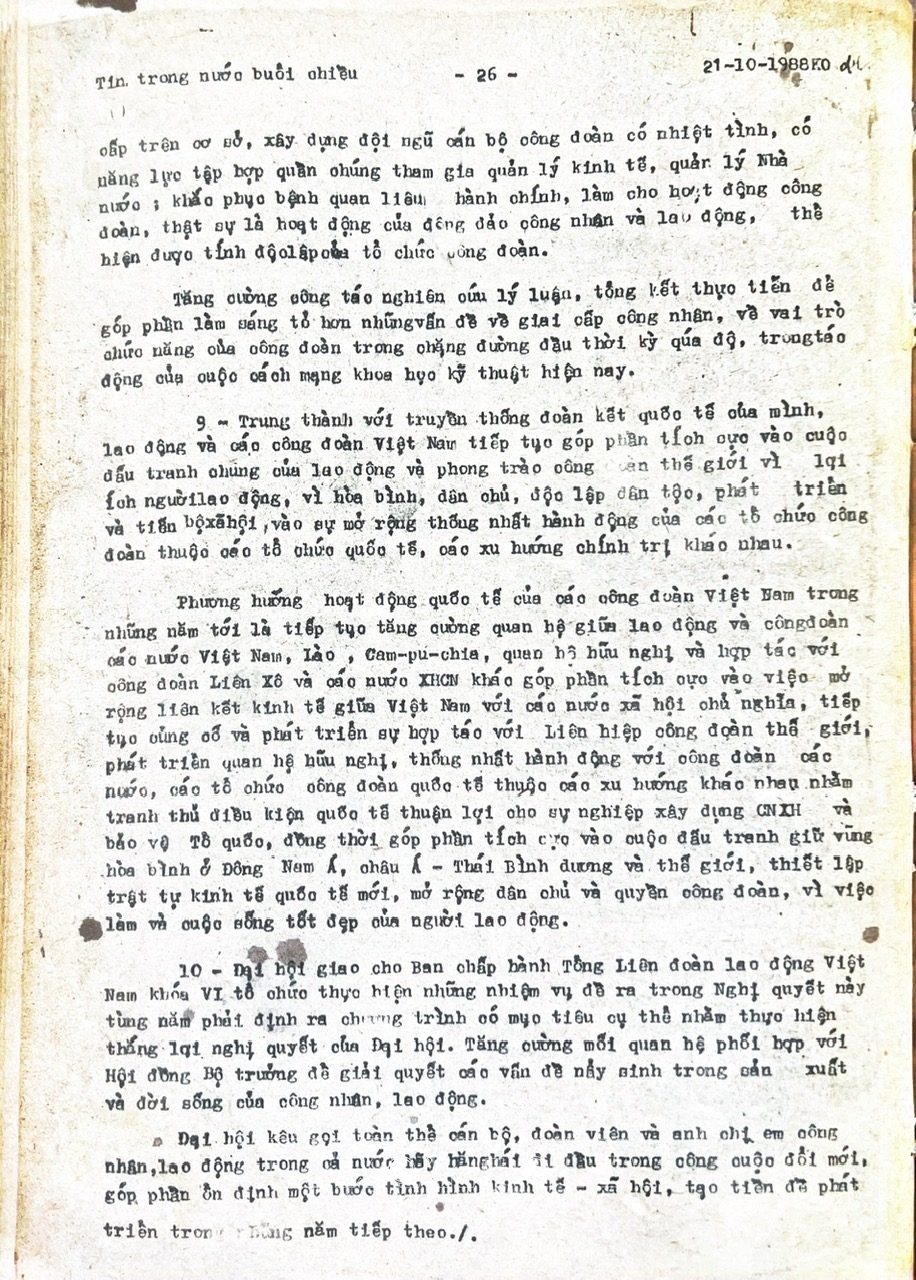 Tin trong nước buổi chiều - 26 - 21-10-1988KO
cấp trên cơ sở, xây dựng đội ngũ cán bộ công đoàn có nhiệt tình, có
năng lực tập hợp quần chúng tham gia quản lý kinh tế, quản lý Nhà
nước ; khắc phục bệnh quan liêu hành chính, làm cho hoạt động công
đoàn, thật sự là hoạt động của đông đảo công nhân và lao động, thể
hiện được tính độclậpcủa tổ chức công đoàn.
Tăng cường công tác nghiên cứu lý luận, tổng kết thực tiễn để
góp phần làm sáng tỏ hơn nhữngvấn đề về giai cấp công nhân, về vai trò
chức năng của công đoàn trong chặng đường đầu thời kỳ qúa độ, trongtác
động của cuộc cách mạng khoa học kỹ thuật hiện nay.
9 - Trung thành với truyền thống đoàn kết quốc tế của mình,
lao động và các công đoàn Việt Nam tiếp tục góp phần tích cực vào cuộc
đấu tranh chung của lao động và phong trào công đoàn thế giới vì lợi
ích ngườilao động, vì hòa bình, dân chủ, độc lập dân tộc, phát triển
và tiến bộxãhội ,vào sự mở rộng thống nhất hành động của các tổ chức công
đoàn thuộc các tổ chức quốc tế, các xu hướng chính trị khác nhau.
Phương hướng hoạt động quốc tế của các công đoàn Việt Nam trong
những năm tới là tiếp tục tăng cường quan hệ giữa lao động và côngđoàn
các nước Việt Nam, Lào , Cam-pu-chia, quan hệ hữu nghị và hợp tác với
công đoàn Liên Xô và các nước XHCN khác góp phần tích cực vào việc mở
rộng liên kết kinh tế giữa Việt Nam với các nước xã hội chủ nghĩa, tiếp
tục củng cố và phát triển sự hợp tác với Liên hiệp công đoàn thế giới,
phát triển quan hệ hữu nghị, thống nhất hành động với công đoàn các
nước, các tổ chức công đoàn quốc tế thuộc các xu hướng khác nhau nhằm
tranh thủ điều kiện quốc tế thuận lợi cho sự nghiệp xây dựng CNXH và
bảo vệ Tổ quốc, đồng thời góp phần tích cực vào cuộc đấu tranh giữ vững
hòa bình ở Đông Nam Á, châu Á - Thái Bình dương và thế giới, thiết lập
trật tự kinh tế quốc tế mới, mở rộng dân chủ và quyền công đoàn, vì việc
làm và cuộc sống tốt đẹp của người lao động.
10 - Đại hội giao cho Ban chấp hành Tổng Liên đoàn lao động Việt
Nam khóa VI tổ chức thực hiện những nhiệm vụ đề ra trong Nghị quyết này
từng năm phải định ra chương trình có mục tiêu cụ thể nhằm thực hiện
thắng lợi nghị quyết của Đại hội. Tăng cường mối quan hệ phối hợp với
Hội đồng Bộ trưởng để giải quyết các vấn đề nẩy sinh trong sản xuất
và đời sống của công nhân, lao động.
Đại hội kêu gọi toàn thể cán bộ, đoàn viên và anh chị em công
nhân,lao động trong cả nước hãy hănghái đi đầu trong công cuộc đổi mới,
góp phần ổn định một bước tình hình kinh tế - xã hội, tạo tiền đề phát
triển trong những năm tiếp theo./.